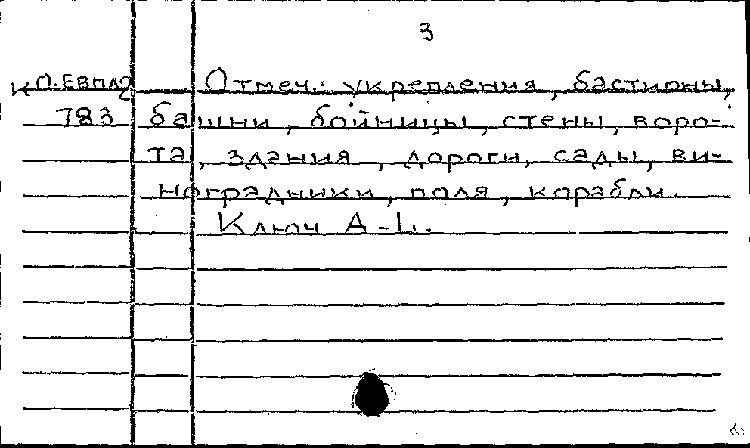 3
К П.Евпл2 Отмеч.: укрепления, бастионы,
783 башни, бойницы, стены, воро-
та, здания, дороги, сады, ви-
ноградники, поля, корабли.
Ключ A-L.